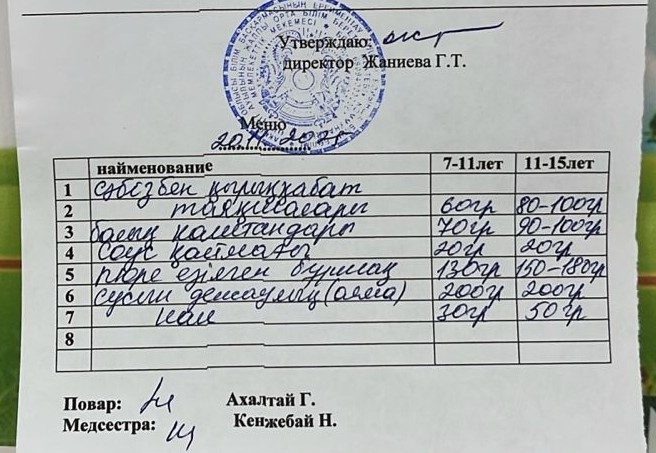 Утверждаю:
директор Жаниева Г.Т.
Меню
наименование 7-11лет 11-15лет
1 сәбізбен қырыққабат
2 таяқшалары 60гр 80-100гр
3 балық 70гр 90-100гр
4 соус қаймағы 20гр 20гр
5 пюре езілген бұршақ 130гр 150-180гр
6 сусын (алма) 200гр 200гр
7 нан 30гр 50гр
8
Повар: Ахалтай Г.
Медсестра: Кенжебай Н.